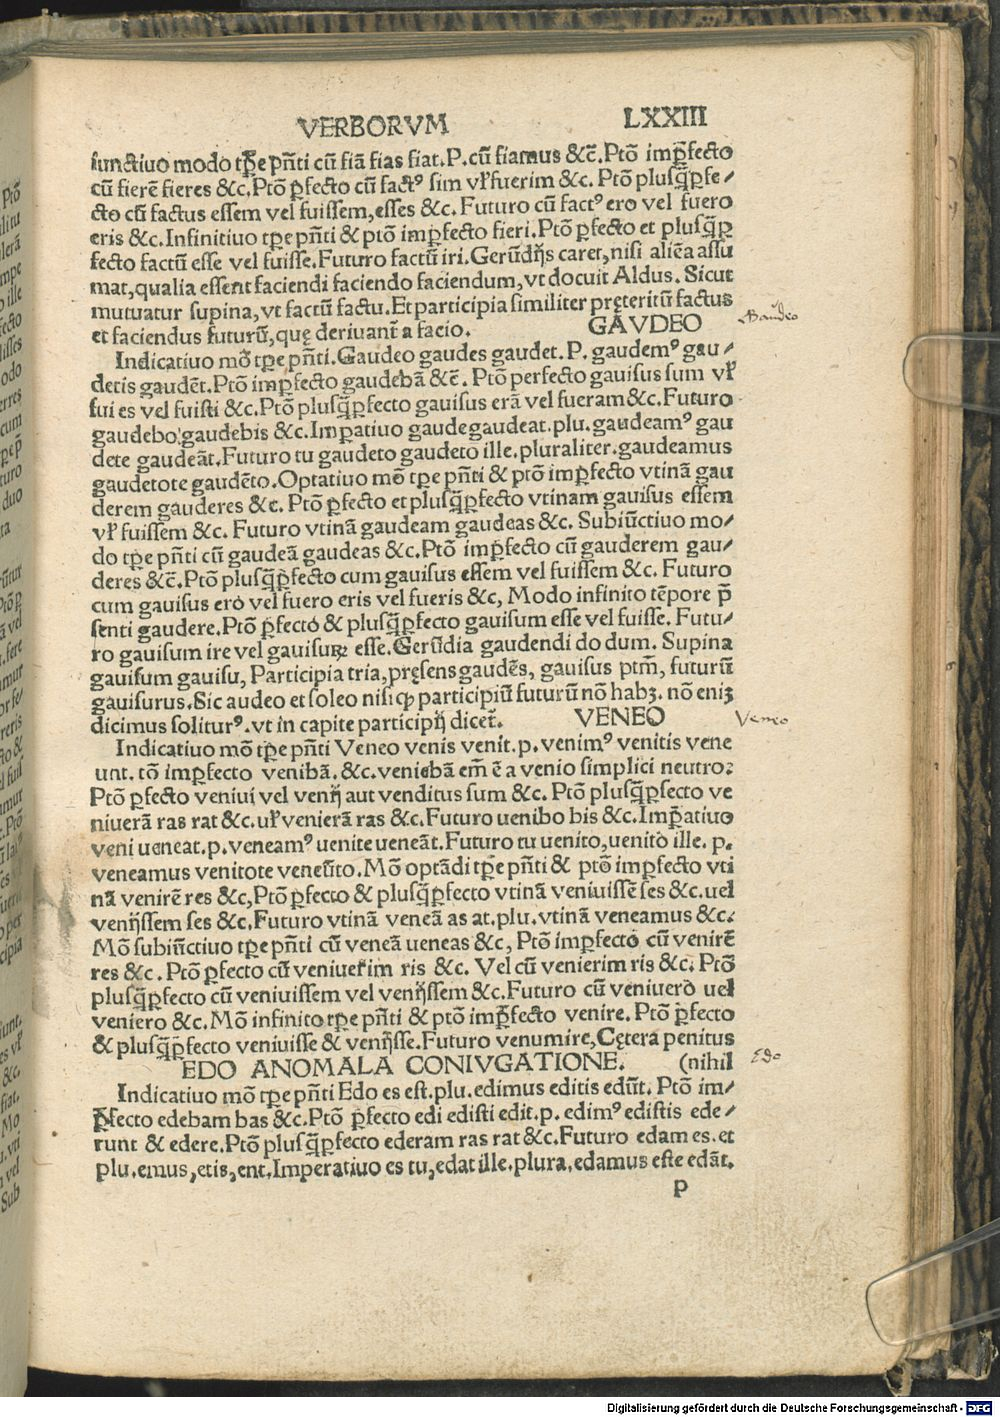 VERBORVM LXXIII
iunctiuo modo tp̄e pn̄ti cū fiā fias fiat. P. cū fiamus &c̄. Ptō imp̄fecto
cū fierē fieres &c. Ptō ꝑfecto cū factꝰ sim vł fuerim &c. Ptō plusq̄ꝑfe⸗
cto cū factus essem vel fuissem, esses &c. Futuro cū factꝰ ero vel fuero
eris &c. Infinitiuo tp̄e pn̄ti & ptō imꝑfecto fieri. Ptō ꝑfecto et plusq̄ꝑ
fecto factū esse vel fuisse. Futuro factū iri. Gerūdijs caret, nisi aliēa assu
mat, qualia essent faciendi faciendo faciendum, vt docuit Aldus. Sicut
mutuatur supina, vt factū factu. Et participia similiter pręteritū factus
et faciendus futurū, quę deriuant̄ a facio. GAVDEO
Gaudeo
Indicatiuo mō tp̄e pn̄ti. Gaudeo gaudes gaudet. P. gaudemꝰ gau⸗
detis gaudēt. Ptō imꝑfecto gaudebā &c̄. Ptō perfecto gauisus sum vł
fui es vel fuisti &c. Ptō plusq̄ꝑfecto gauisus erā vel fueram &c. Futuro
gaudebo gaudebis &c. Imꝑatiuo gaude gaudeat. plu. gaudeamꝰ gau
dete gaudeāt. Futuro tu gaudeto gaudeto ille. pluraliter. gaudeamus
gaudetote gaudēto. Optatiuo mō tp̄e pn̄ti & ptō imꝑfecto vtinā gau
derem gauderes &c. Ptō ꝑfecto et plusq̄ꝑfecto vtinam gauisus essem
vł fuissem &c. Futuro vtinā gaudeam gaudeas &c. Subiūctiuo mo⸗
do tp̄e pn̄ti cū gaudeā gaudeas &c. Ptō imꝑfecto cū gauderem gau⸗
deres &c̄. Ptō plusq̄ꝑfecto cum gauisus essem vel fuissem &c. Futuro
cum gauisus ero vel fuero eris vel fueris &c, Modo infinito tēpore p̄
senti gaudere. Ptō ꝑfecto & plusq̄ꝑfecto gauisum esse vel fuisse. Futu⸗
ro gauisum ire vel gauisuꝝ esse. Gerūdia gaudendi do dum. Supina
gauisum gauisu, Participia tria, pręsens gaudēs, gauisus ptm̄, futurū
gauisurus. Sic audeo et soleo nisi ꝙ participiū futurū nō habꝫ. nō eniꝫ
dicimus soliturꝰ. vt in capite participij dicet̄. VENEO
Veneo
Indicatiuo mō tp̄e pn̄ti Veneo venis venit. p. venimꝰ venitis vene
unt. tō imꝑfecto venibā. &c. veniebā em̄ ē a venio simplici neutro:
Ptō ꝑfecto veniui vel venij aut venditus sum &c. Ptō plusq̄ꝑfecto ve
niuerā ras rat &c. uł venierā ras &c. Futuro uenibo bis &c. Imꝑatiuo
veni ueneat. p. veneamꝰ uenite ueneāt. Futuro tu uenito, uenito ille. p.
veneamus venitote veneūto. Mō optādi tp̄e pn̄ti & ptō imꝑfecto vti
nā venirē res &c, Ptō ꝑfecto & plusq̄ꝑfecto vtinā veniuissē ses &c. uel
venijssem ses &c. Futuro vtinā veneā as at. plu. vtinā veneamus &c.
Mō subiūctiuo tp̄e pn̄ti cū veneā ueneas &c, Ptō imꝑfecto cū venirē
res &c. Ptō ꝑfecto cū veniuerim ris &c. Vel cū venierim ris &c. Ptō
plusq̄ꝑfecto cū veniuissem vel venijssem &c. Futuro cū veniuero uel
veniero &c. Mō infinito tp̄e pn̄ti & ptō imp̄fecto venire. Ptō ꝑfecto
& plusq̄ꝑfecto veniuisse & venijsse. Futuro venumire, Cętera penitus
EDO ANOMALA CONIVGATIONE. (nihil
Edo
Indicatiuo mō tp̄e pn̄ti Edo es est. plu. edimus editis edūt. Ptō im⸗
ꝑfecto edebam bas &c. Ptō ꝑfecto edi edisti edit. p. edimꝰ edistis ede⸗
runt & edere. Ptō plusq̄ꝑfecto ederam ras rat &c. Futuro edam es. et
plu. emus, etis, ent. Imperatiuo es tu, edat ille. plura. edamus este edāt.
p
Digitalisierung gefördert durch die Deutsche Forschungsgemeinschaft - DFG